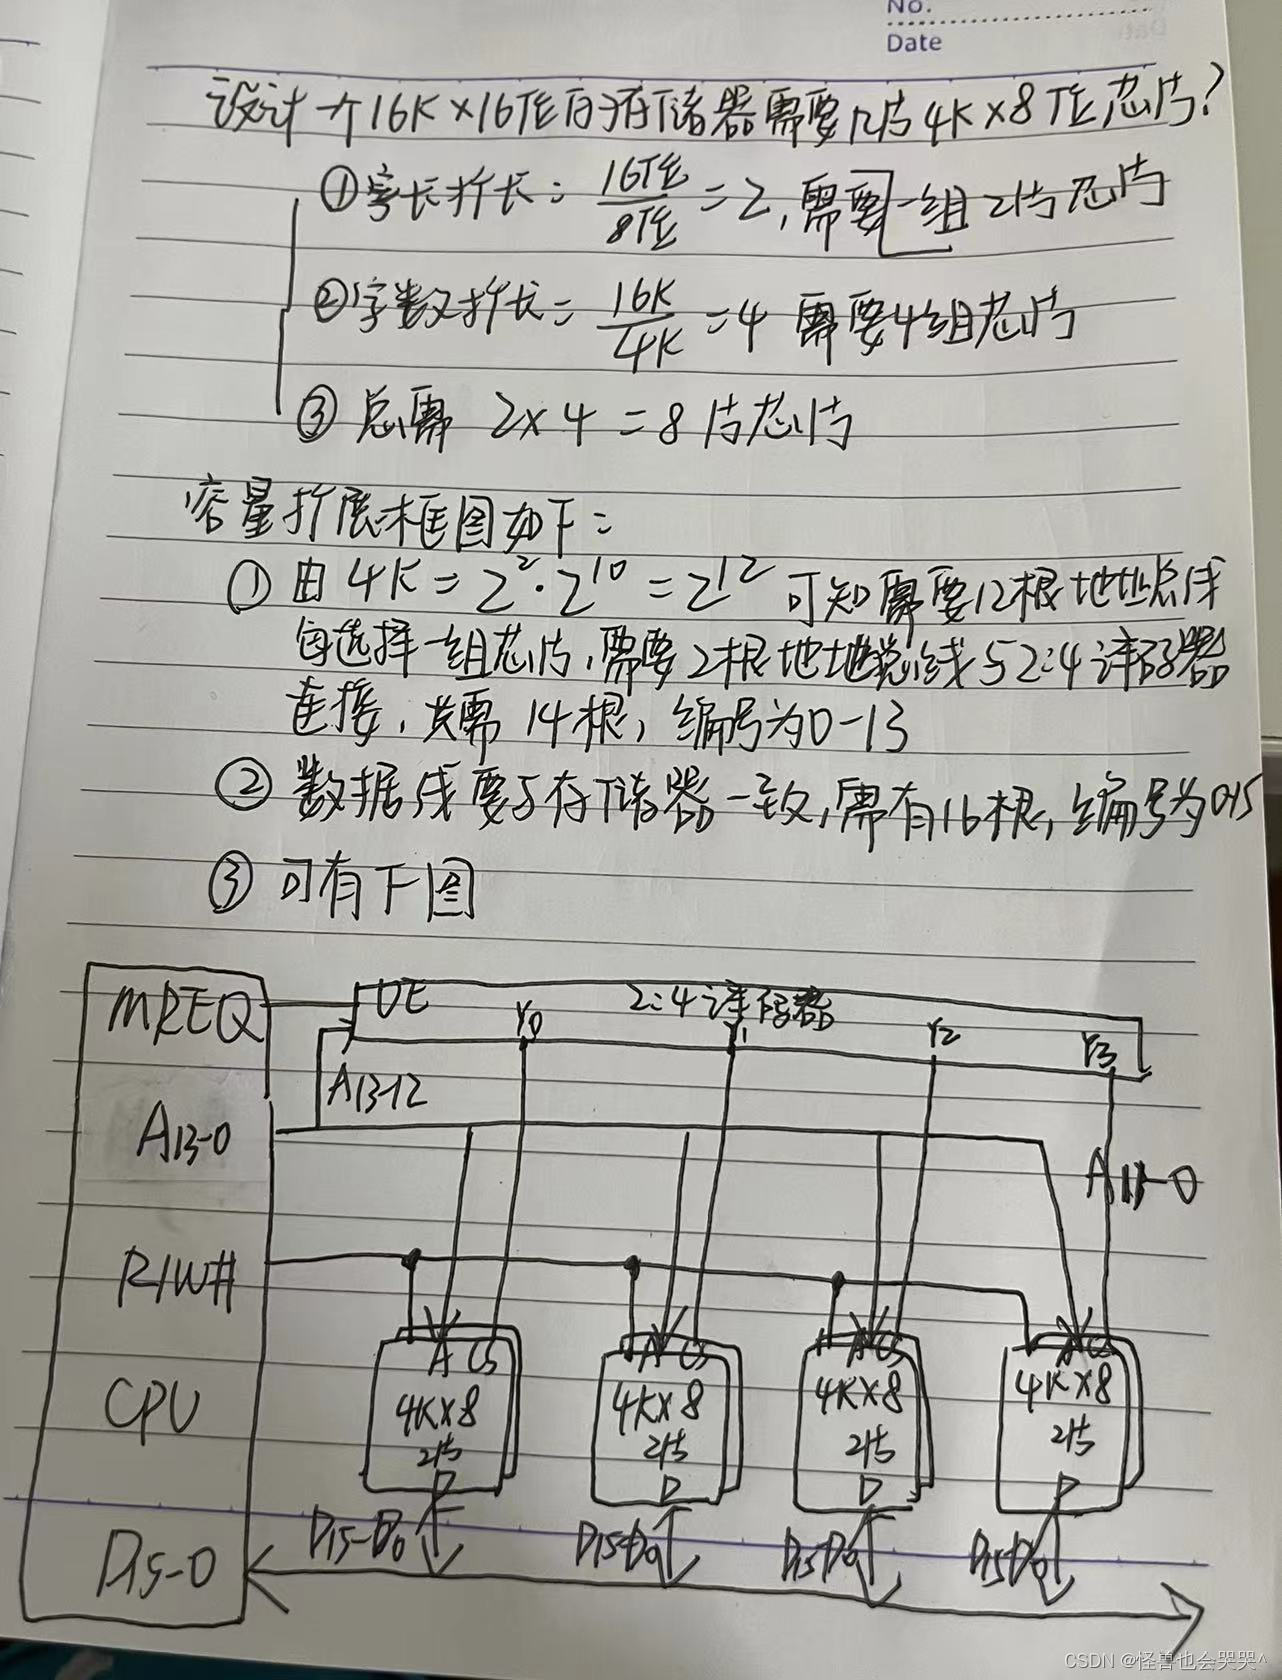 No.
Date
设计一个16K×16位的存储器需要几片4K×8位芯片?
①字长扩长: 16位/8位 =2,需要一组2片芯片
②字数扩长= 16K/4K =4 需要4组芯片
③总需 2×4=8片芯片
容量扩展框图如下:
①由4K=2²·2¹⁰=2¹²可知需要12根地址总线
每选择一组芯片,需要2根地址总线与2:4译码器
连接,共需14根,编号为0-13
②数据线要与存储器一致,需有16根,编号为0-15
③可有下图
MREQ OE 2:4译码器
Y0 Y1 Y2 Y3
A13-12
A13-0
A11-0
R/W#
A CS A CS A CS A CS
CPU 4K×8 4K×8 4K×8 4K×8
2片 2片 2片 2片
D D D D
D15-D0 D15-D0 D15-D0 D15-D0
D15-0
CSDN @怪兽也会哭哭^